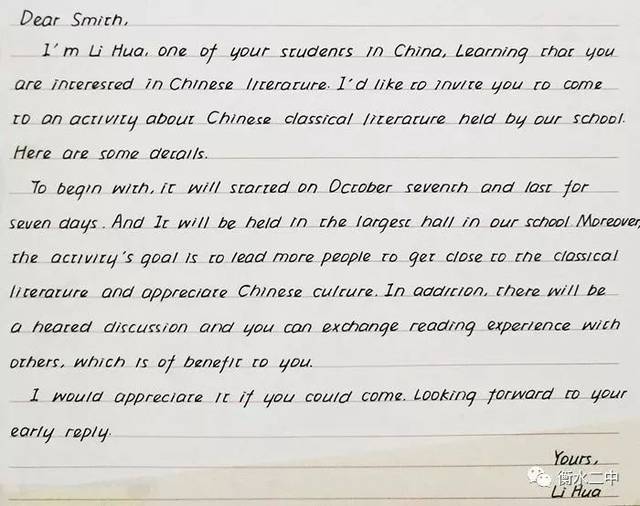 Dear Smith,
I'm Li Hua, one of your students in China, Learning that you
are interested in Chinese literature. I'd like to invite you to come
to an activity about Chinese classical literature held by our school.
Here are some details.
To begin with, it will started on October seventh and last for
seven days. And It will be held in the largest hall in our school Moreover,
the activity's goal is to lead more people to get close to the classical
literature and appreciate Chinese culture. In addition, there will be
a heated discussion and you can exchange reading experience with
others, which is of benefit to you.
I would appreciate it if you could come. Looking forward to your
early reply.
Yours,
衡水二中
Li Hua